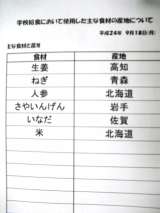 学校給食において使用した主な食材の産地について
平成24年 9月18日(火)
主な食材と産地
食材 産地
生姜 高知
ねぎ 青森
人参 北海道
さやいんげん 岩手
いなだ 佐賀
米 北海道